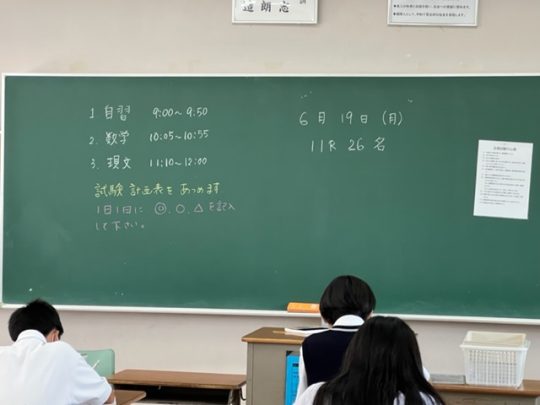 1 自習 9:00~9:50
2. 数学 10:05~10:55
3. 現文 11:10~12:00
試験 計画表を あつめます
1日1日に ◎、○、△ を記入
して下さい。
6月 19日 (月)
11R 26名